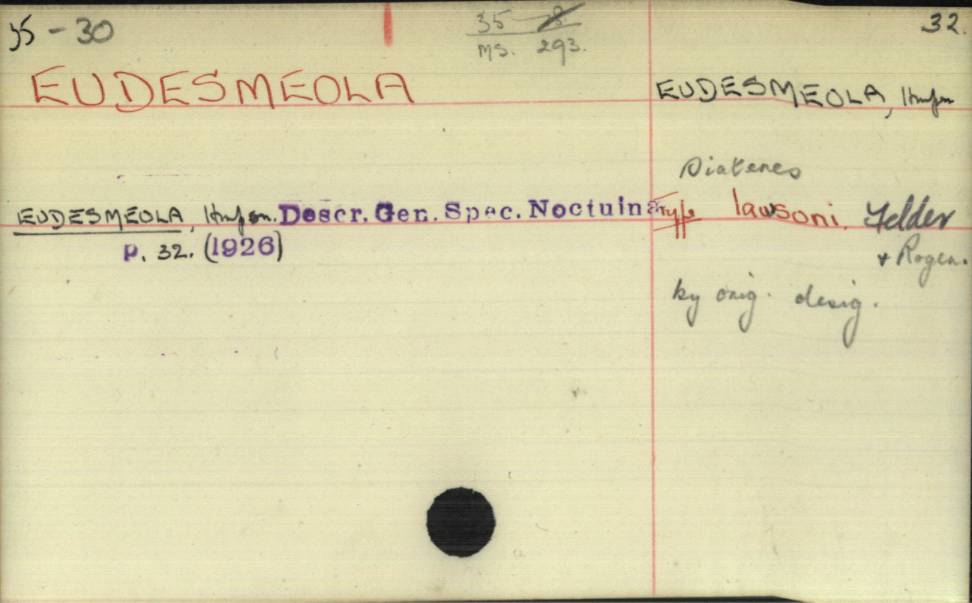 35 - 30
35 - 8.
ms. 293.
32.
EUDESMEOLA
EUDESMEOLA, Hmpsn.
Diatenes
EUDESMEOLA, Hmpsn. Descr. Gen. Spec. Noctuinæ
p. 32. (1926)
Type lawsoni. Felder
+ Rogen.
by orig. desig.